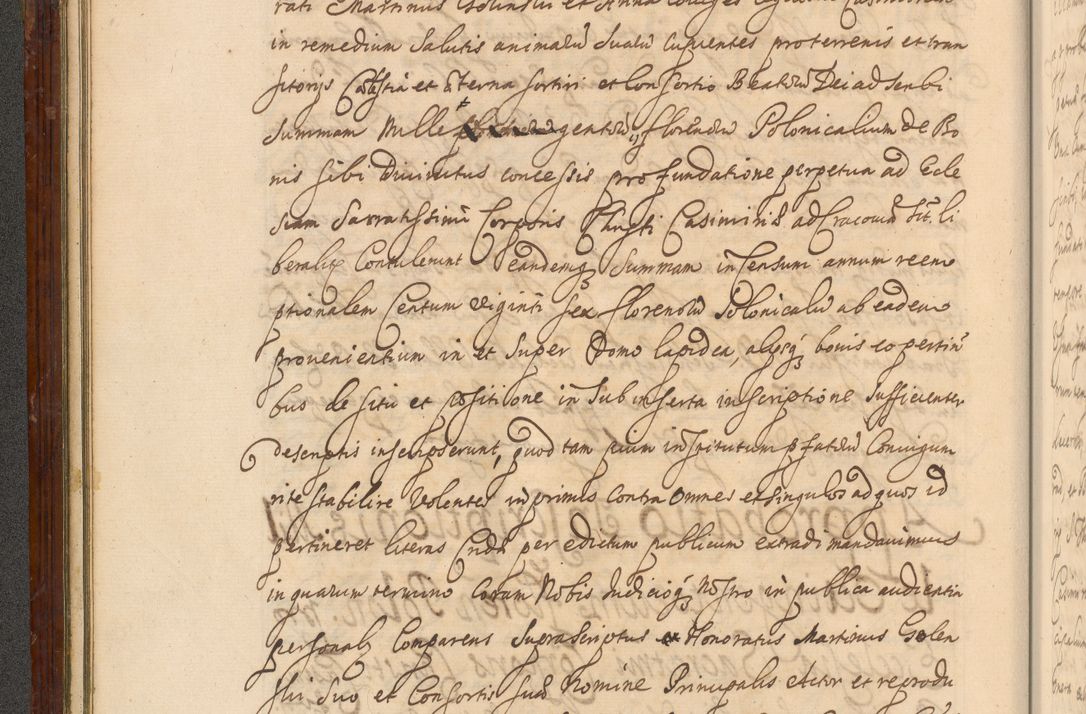 rati Martinus Golinski et Anna Coniuges legitimi Casimirien
in remedium Salutis animarũ Suarũ cupientes pro terrenis et tran
sitorijs Cœlestia et æterna sortiri et Consortio Beatorũ Dei adscribi
Summam Mille gentorũ florenorũ Polonicalium de Bo
nis sibi Divinitus concessis pro fundatione perpetua ad Eccle
siam Sacratissimi Corporis Christi Casimiriæ ad Cracoviã Sit: li
beralr̃ Contulerunt eandemq́ Summam in Censum annum reem
ptionalem Centum viginti sex florenorũ Polonicaliũ ab eadem
provenientium in et Super Domo lapidea, alijsq́ bonis eo pertinẽ
bus de situ et positione in Sub inserta inscriptione Sufficienter
descriptis inscripserunt, quod tam pium institutum pfatorũ Coniugum
rite stabilire Volentes inprimis Contra Omnes et singulos ad quos id
pertineret literas Cridæ per edictum publicum extradi mandavimus
in quarum termino Coram Nobis Iudicioq́ Nostro in publica audientia
personalr̃ Comparens Suprascriptus Honoratus Martinus Golen
ski Suo et Consortis Suæ Nomine Principalis Actor et reprodu